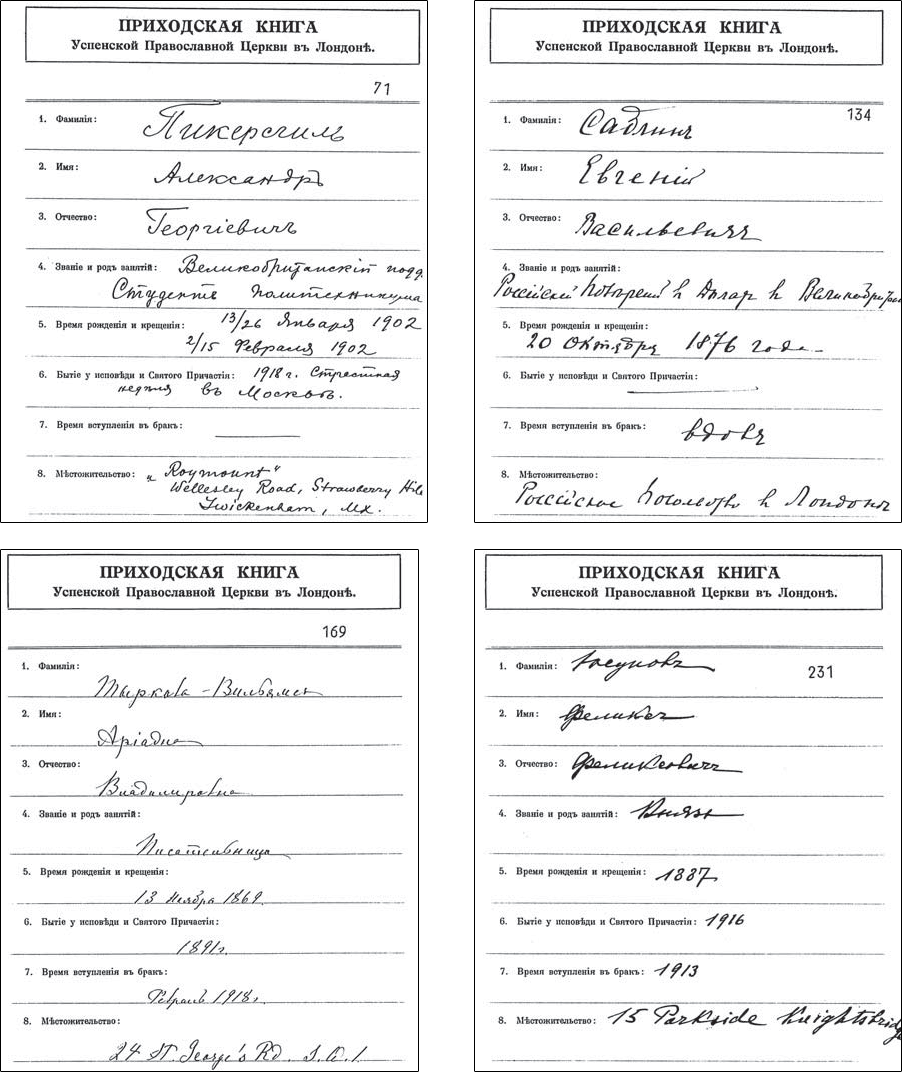 ПРИХОДСКАЯ КНИГА
Успенской Православной Церкви въ Лондонѣ.
71
1. Фамилія: Пикерсгиль
2. Имя: Александръ
3. Отчество: Георгіевичъ
4. Званіе и родъ занятій: Великобританскій подд.
Студентъ политехникума
5. Время рожденія и крещенія: 13/26 Января 1902
2/15 Февраля 1902
6. Бытіе у исповѣди и Святого Причастія: 1918 г. Страстная
недѣля въ Москвѣ.
7. Время вступленія въ бракъ:
8. Мѣстожительство: „Roymount“
Wellesley Road, Strawberry Hill
Twickenham, Mx.
ПРИХОДСКАЯ КНИГА
Успенской Православной Церкви въ Лондонѣ.
134
1. Фамилія: Саблинъ
2. Имя: Евгеній
3. Отчество: Васильевичъ
4. Званіе и родъ занятій:
Россійскій Повѣренный въ Дѣлахъ въ
5. Время рожденія и крещенія:
20 Октября 1876 года
6. Бытіе у исповѣди и Святого Причастія:
7. Время вступленія въ бракъ: вдовъ
8. Мѣстожительство:
Россійское Посольство въ Лондонѣ
ПРИХОДСКАЯ КНИГА
Успенской Православной Церкви въ Лондонѣ.
169
1. Фамилія:
Тыркова-Вильямсъ
2. Имя:
Аріадна
3. Отчество:
Владиміровна
4. Званіе и родъ занятій:
Писательница
5. Время рожденія и крещенія:
13 Ноября 1869.
6. Бытіе у исповѣди и Святого Причастія:
1891 г.
7. Время вступленія въ бракъ:
Февраль 1918 г.
8. Мѣстожительство:
24 St. George's Rd.
ПРИХОДСКАЯ КНИГА
Успенской Православной Церкви въ Лондонѣ.
231
1. Фамилія: Юсуповъ
2. Имя: Феликсъ
3. Отчество: Феликсовичъ
4. Званіе и родъ занятій: Князь
5. Время рожденія и крещенія: 1887
6. Бытіе у исповѣди и Святого Причастія: 1916
7. Время вступленія въ бракъ: 1913
8. Мѣстожительство: 15 Parkside Knightsbridge